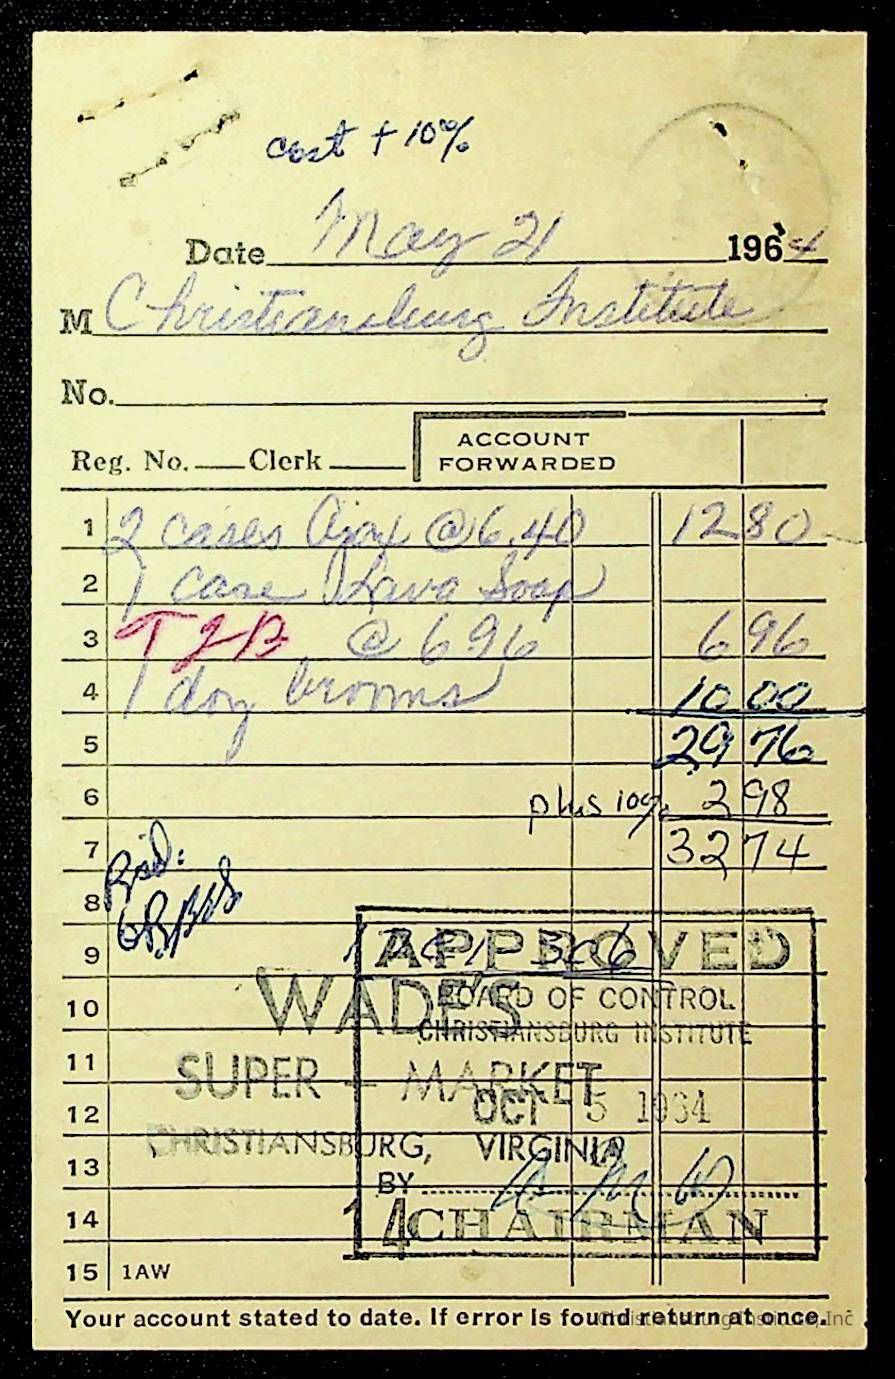 cost + 10%
Date May 21 1964
M Christiansburg Institute
No.
Reg. No. Clerk ACCOUNT FORWARDED
1 2 cases Ajax @ 6.40 12 80
2 1 case Lava Soap
3 @ 6 96 6 96
4 1 doz brooms 10 00
5 29 76
6 plus 10% 2 98
7 32 74
8
9 APPROVED
10 WADE'S BOARD OF CONTROL
CHRISTIANSBURG INSTITUTE
11 SUPER - MARKET
12 OCT 5 1964
CHRISTIANSBURG, VIRGINIA
13 BY
14 14 CHAIRMAN
15 1AW
Your account stated to date. If error is found return at once.
Christiansburg Institute, Inc